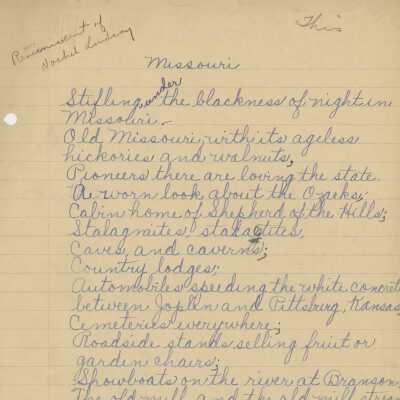 This
Reminiscent of
Vachel Lindsay
Missouri
Stifling under the blackness of night in
Missouri.
Old Missouri, with its ageless
hickories and walnuts;
Pioneers there are loving the state.
A worn look about the Ozarks;
Cabin home of Shepherd of the Hills;
Stalagmites, stalactites,
Caves, and caverns;
Country lodges;
Automobiles speeding the white concrete
between Joplin and Pittsburg, Kansas;
Cemeteries everywhere;
Roadside stands selling fruit or
garden chairs;
Showboats on the river at Branson,
The old mill and the old mill stream